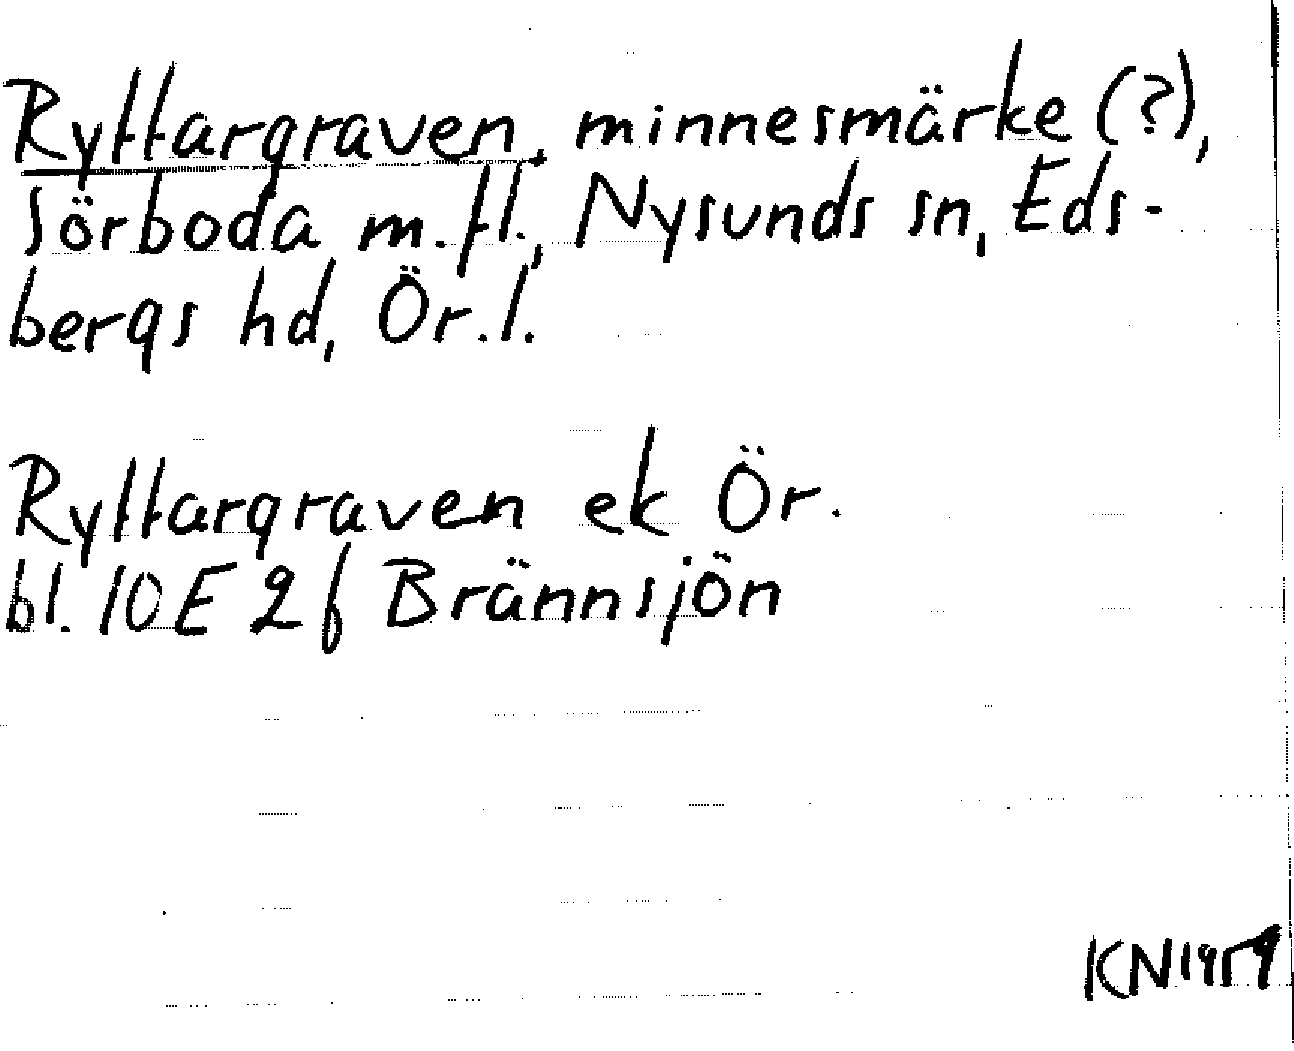 Ryttargraven, minnesmärke (?),
Sörboda m.fl., Nysunds sn, Eds-
bergs hd, Ör.l.
Ryttargraven ek Ör.
bl. 10E 2f Brännsjön
KN 1959